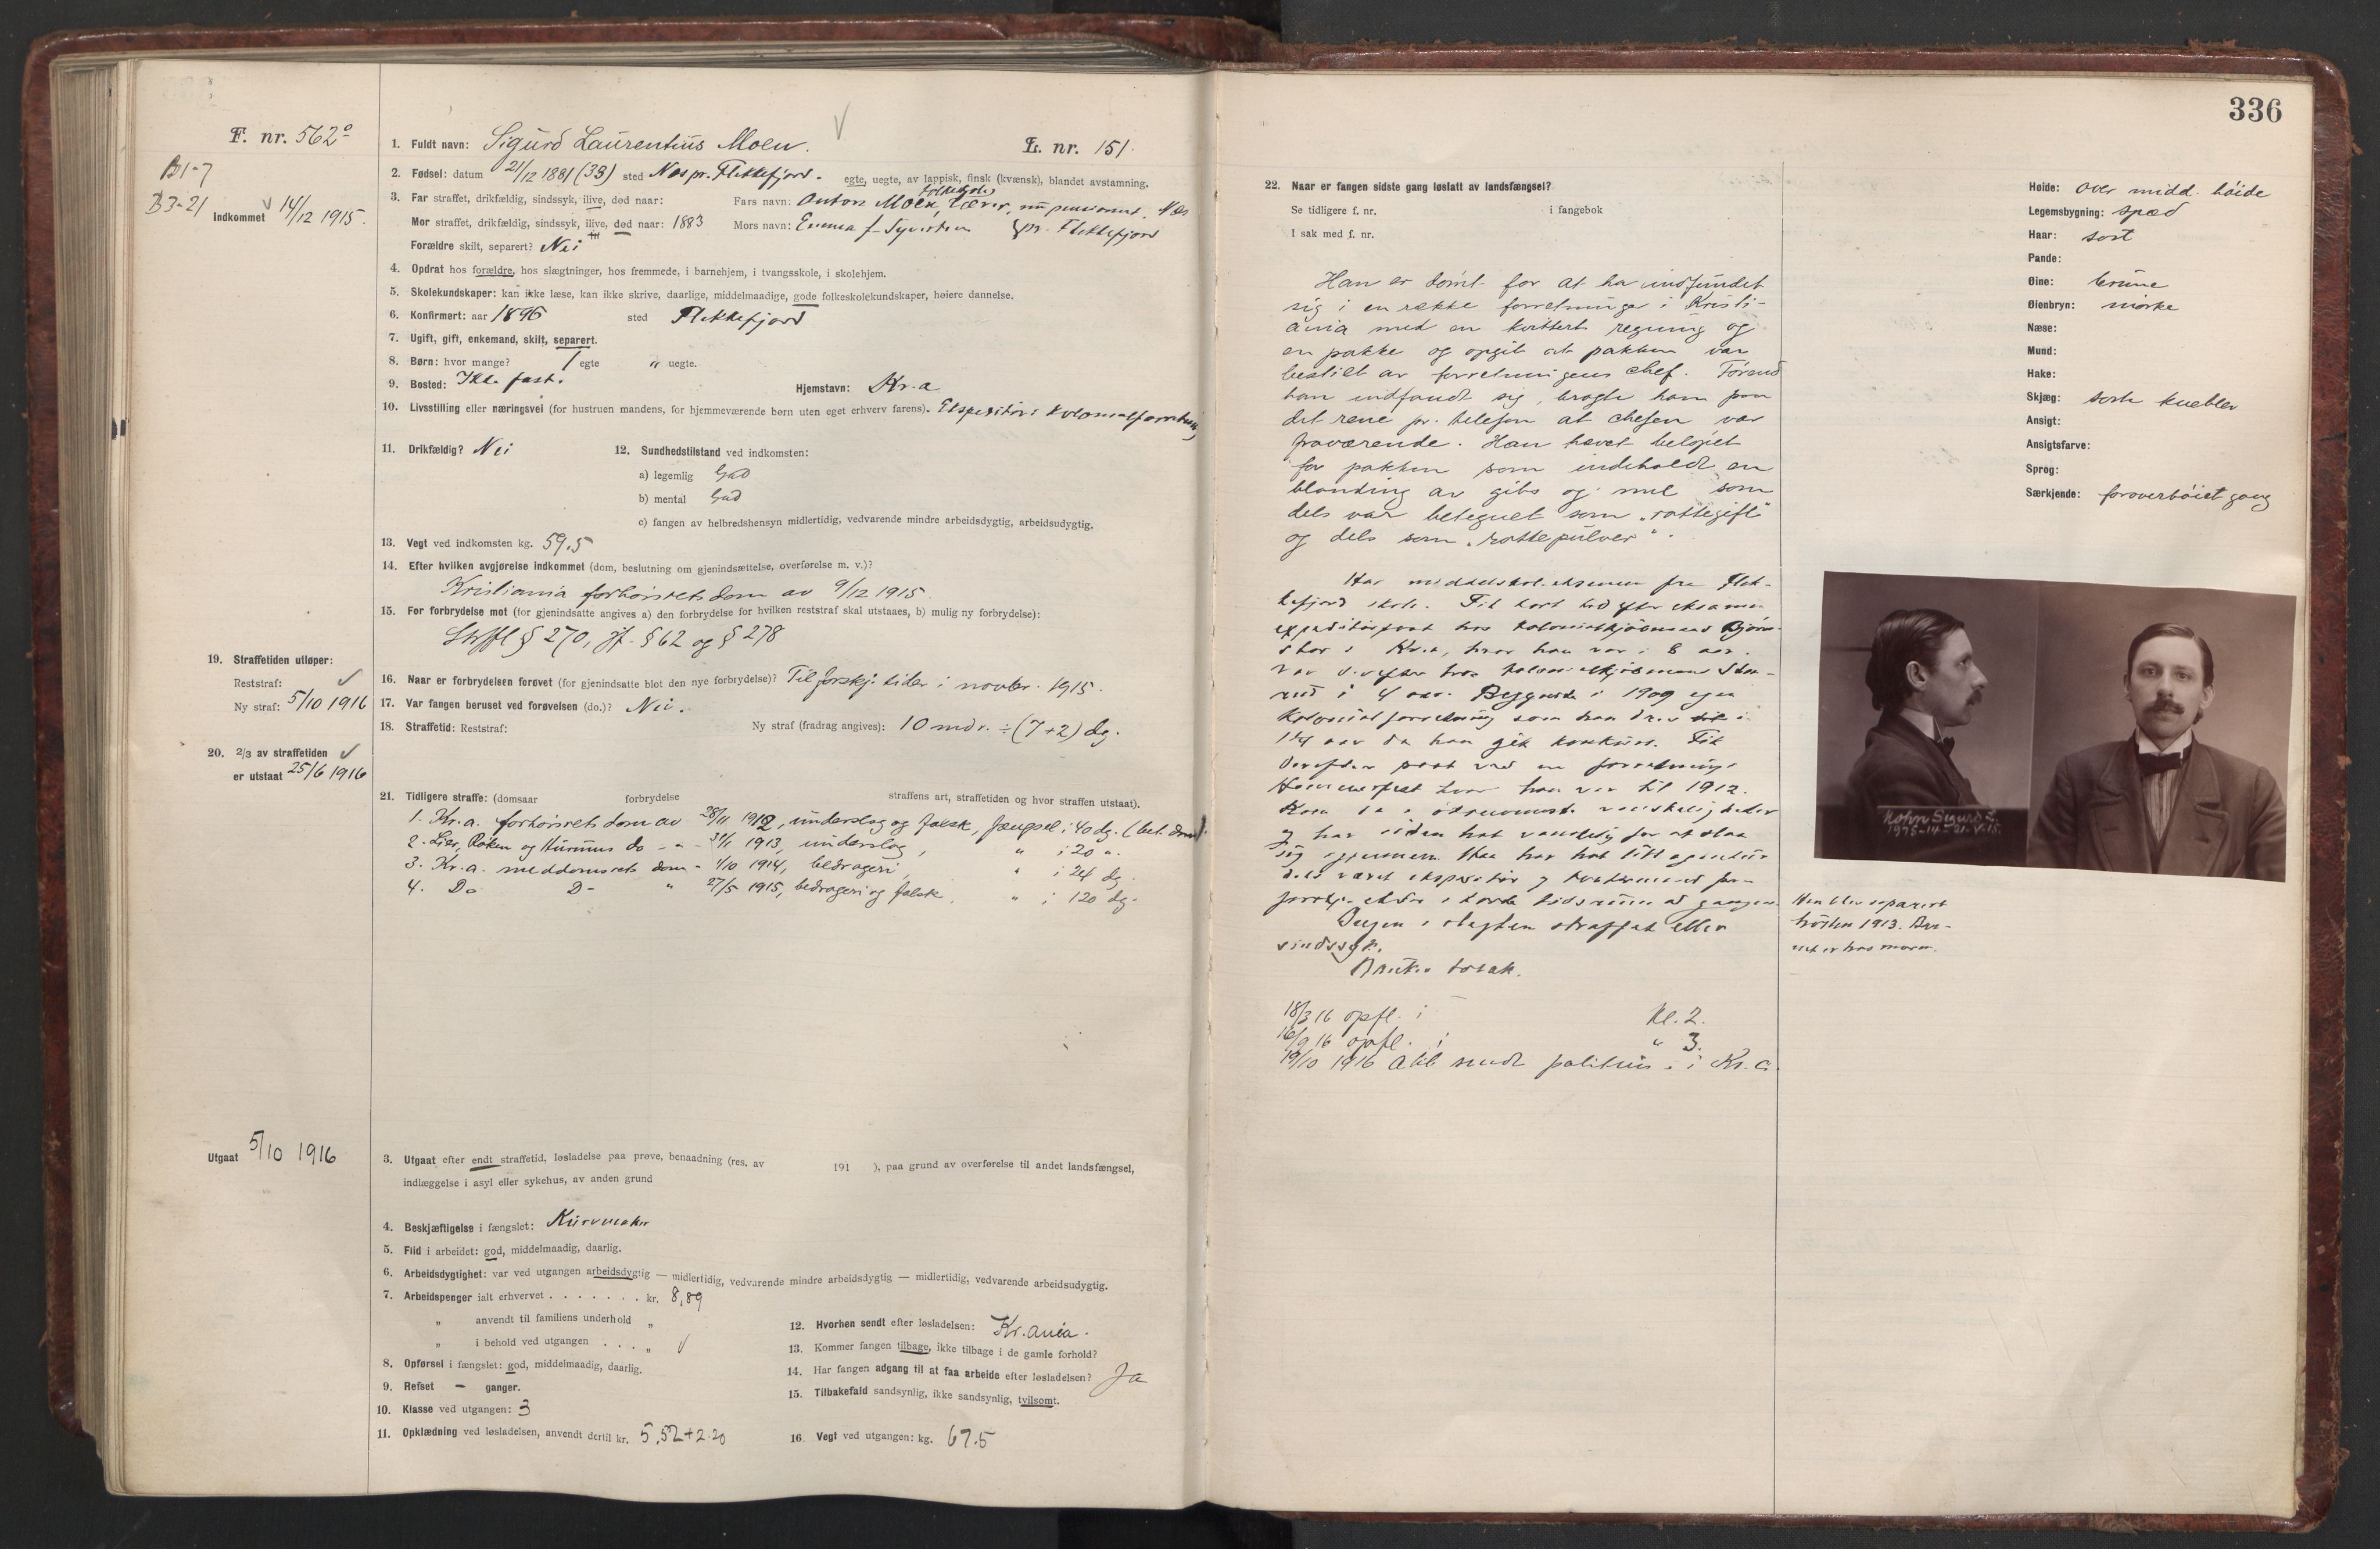 F. nr. 562º
B1-7
B3-21
Indkommet 14/12 1915.
1. Fuldt navn: Sigurd Laurentius Moen. L. nr. 151.
2. Fødsel: datum 21/12 1881 (33) sted Nes pr. Flekkefjord. egte, uegte, av lappisk, finsk (kvænsk), blandet avstamning.
3. Far straffet, drikfældig, sindssyk, ilive, død naar: Fars navn: Anton Moen, lærer, nu pensionert. Nes
Mor straffet, drikfældig, sindssyk, ilive, død naar: 1883 Mors navn: Emma f. pr. Flekkefjord
Forældre skilt, separert? Nei
4. Opdrat hos forældre, hos slægtninger, hos fremmede, i barnehjem, i tvangsskole, i skolehjem.
5. Skolekundskaper: kan ikke læse, kan ikke skrive, daarlige, middelmaadige, gode folkeskolekundskaper, høiere dannelse.
6. Konfirmert: aar 1896 sted Flekkefjord
7. Ugift, gift, enkemand, skilt, separert.
8. Børn: hvor mange? 1 egte " uegte.
9. Bosted: Ikke fast. Hjemstavn: Kr.a
10. Livsstilling eller næringsvei (for hustruen mandens, for hjemmeværende børn uten eget erhverv farens). Ekspeditør i kolonialforretning
11. Drikfældig? Nei 12. Sundhedstilstand ved indkomsten:
a) legemlig God
b) mental God
c) fangen av helbredshensyn midlertidig, vedvarende mindre arbeidsdygtig, arbeidsudygtig.
13. Vegt ved indkomsten kg. 59.5
14. Efter hvilken avgjørelse indkommet (dom, beslutning om gjenindsættelse, overførelse m. v.)?
Kristiania forhørsrets dom av 9/12 1915.
15. For forbrydelse mot (for gjenindsatte angives a) den forbrydelse for hvilken reststraf skal utstaaes, b) mulig ny forbrydelse):
Strfl § 270, jf. § 62 og § 278
16. Naar er forbrydelsen forøvet (for gjenindsatte blot den nye forbrydelse)? Til forskj. tider i novbr. 1915.
17. Var fangen beruset ved forøvelsen (do.)? Nei.
18. Straffetid: Reststraf: Ny straf (fradrag angives): 10 mdr. ÷ (7+2) dg.
19. Straffetiden utløper:
Reststraf:
Ny straf: 5/10 1916
20. 2/3 av straffetiden
er utstaat 25/6 1916
21. Tidligere straffe: (domsaar forbrydelse straffens art, straffetiden og hvor straffen utstaat).
1. Kr.a. forhørsrets dom av 28/11 1912, underslag og falsk, fængsel i 40 dg. (bet. dom).
2. Lier, Røken og Hurums do - " - 31/1 1913, underslag, " i 20 "
3. Kr.a. meddomsrets dom - 1/10 1914, bedrageri, " i 24 dg.
4. Do D- " 27/5 1915, bedrageri og falsk, " i 120 dg.
Utgaat 5/10 1916
3. Utgaat efter endt straffetid, løsladelse paa prøve, benaadning (res. av 191 ), paa grund av overførelse til andet landsfængsel,
indlæggelse i asyl eller sykehus, av anden grund
4. Beskjæftigelse i fængslet: Kurvmaker
5. Flid i arbeidet: god, middelmaadig, daarlig.
6. Arbeidsdygtighet: var ved utgangen arbeidsdygtig — midlertidig, vedvarende mindre arbeidsdygtig — midlertidig, vedvarende arbeidsudygtig.
7. Arbeidspenger ialt erhvervet . . . . . . . kr. 8,89
" anvendt til familiens underhold "
" i behold ved utgangen . . . "
8. Opførsel i fængslet: god, middelmaadig, daarlig.
9. Refset — ganger.
10. Klasse ved utgangen: 3
11. Opklædning ved løsladelsen, anvendt dertil kr. 5,52+2.20
12. Hvorhen sendt efter løsladelsen: Kr.ania.
13. Kommer fangen tilbage, ikke tilbage i de gamle forhold?
14. Har fangen adgang til at faa arbeide efter løsladelsen? Ja
15. Tilbakefald sandsynlig, ikke sandsynlig, tvilsomt.
16. Vegt ved utgangen: kg. 67.5
336
22. Naar er fangen sidste gang løslatt av landsfængsel?
Se tidligere f. nr. i fangebok
I sak med f. nr.
Han er dømt for at ha indfundet
sig i en række forretninger i Kristi-
ania med en kvittert regning og
en pakke og opgit at pakken var
bestilt av forretningens chef. Førend
han indfandt sig, bragte han paa
det rene pr. telefon at chefen var
fraværende. Han hævet beløpet
for pakken som indeholdt en
blanding av gibs og mel som
dels var betegnet som "rottegift"
og dels som "rottepulver".
Har middelskoleeksamen fra Flek-
kefjord skole. Fik kort tid efter eksamen
expeditørpost hos kolonialkjøbmand Bjørn-
stad i Kr.a, hvor han var i 8 aar.
Var derefter hos kolonialkjøbmand
i 4 aar. Begyndte i 1909 egen
kolonialforretning som han drev i
1 1/4 aar da han gik konkurs. Fik
derefter post ved en forretning i
Hammerfest hvor han var til 1912.
Kom da i økonomiske vanskeligheder
og har siden hat vanskelig for at slaa
sig igjennem. Han har hat litt agentur
dels været ekspeditør og kontormand
forskj. steder i korte tidsrum ad gangen.
Ingen i slegten straffet eller
sindssyk.
Bruker tobak.
18/3 16 opfl. i kl. 2.
16/9 16 opfl. i " 3.
19/10 1916 sendt politim. i Kr.a.
Høide: over midd. høide
Legemsbygning: spæd
Haar: sort
Pande:
Øine: brune
Øienbryn: mørke
Næse:
Mund:
Hake:
Skjæg: sorte knebler
Ansigt:
Ansigtsfarve:
Sprog:
Særkjende: foroverbøiet gang
Mohn Sigurd L.
1975-14-21-V-15.
Han blev separert
høsten 1913. Bar-
net er hos moren.